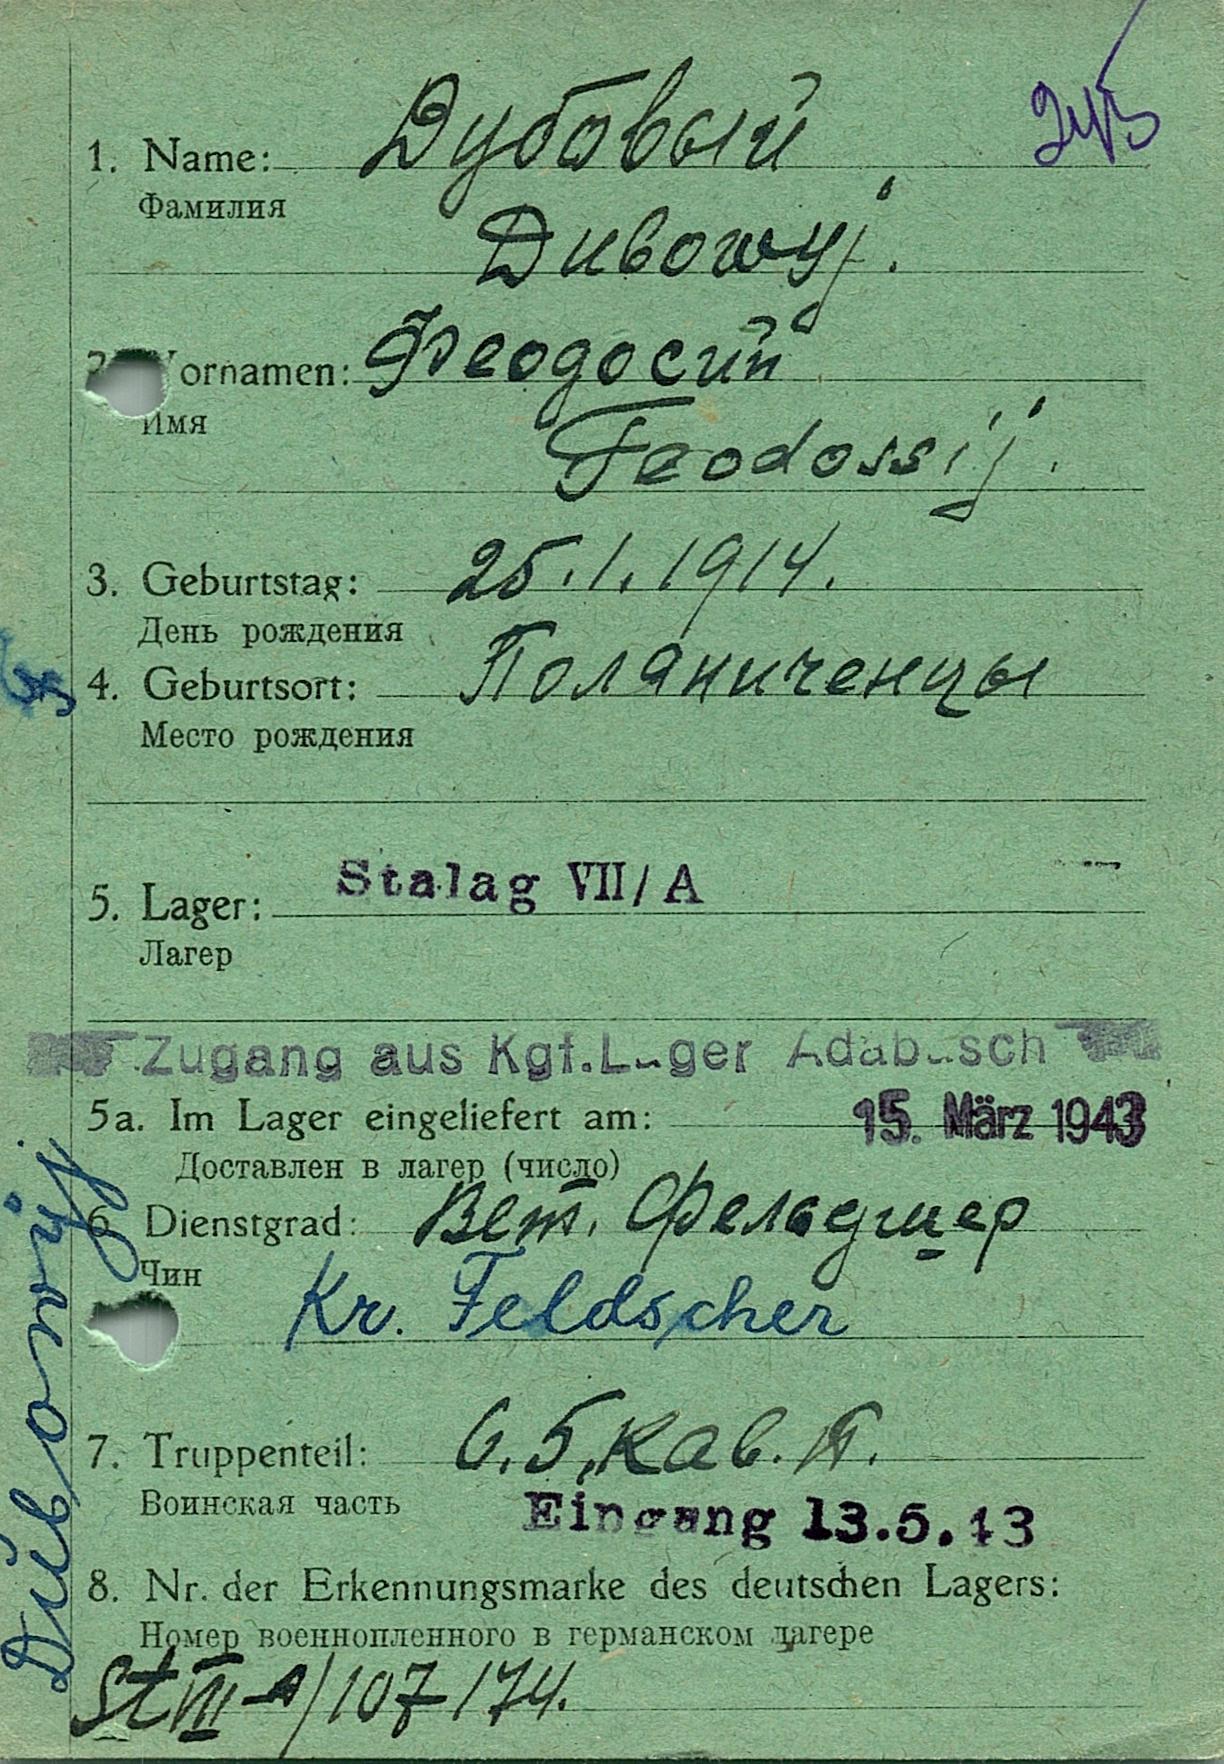 Дубовый
1. Name:
Фамилия
Dubowyj.
Vornamen: Феодосий
Имя
Feodossij.
3. Geburtstag: 25.1.1914.
День рождения
4. Geburtsort: Поланиченцы
Место рождения
Stalag VII/A
5. Lager:
Лагер
Zugang aus Kgf.Lager Adabasch
5a. Im Lager eingeliefert am: 15. März 1943
Доставлен в лагер (число)
6. Dienstgrad: Вет. Фельдшер
Чин
Kr. Feldscher
7. Truppenteil: 6.5, Кав. П.
Воинская часть
Eingang 13.5.43
8. Nr. der Erkennungsmarke des deutschen Lagers:
Номер военнопленного в германском лагере
St VII-A/107174.
Dubowyj